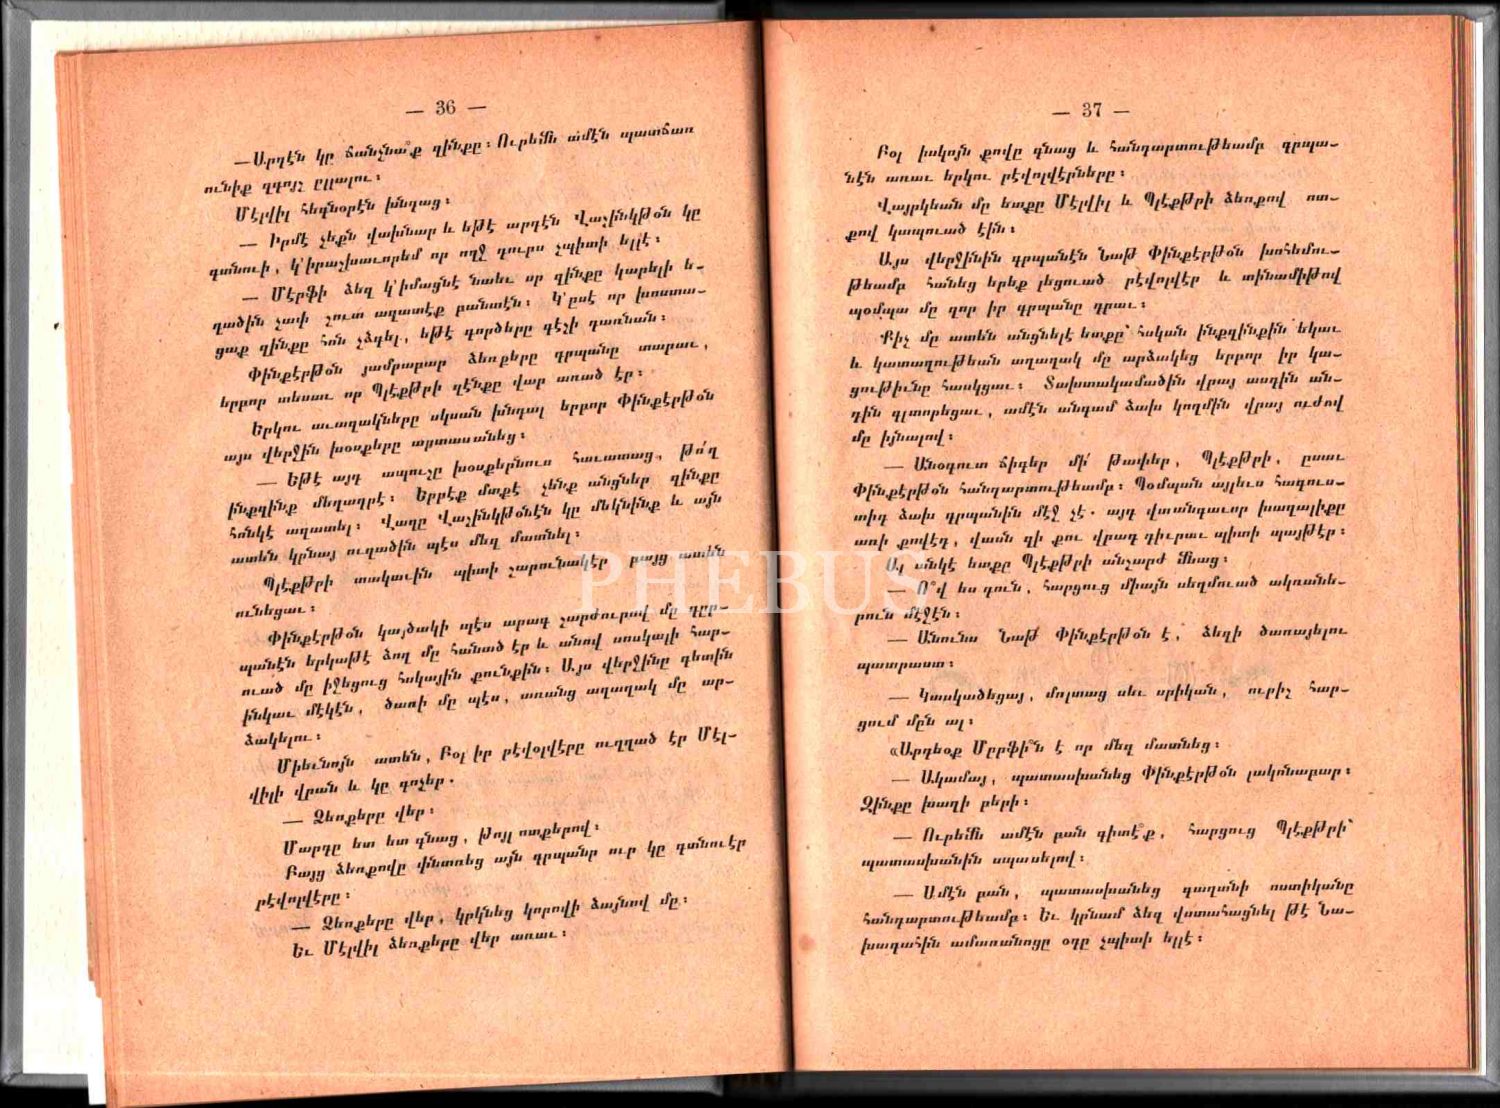 — 36 —
—Արդէն կը ճանչնա՞ք զինքը։ Ուրեմն ամէն պատճառ
ունիք զգոյշ ըլլալու։
Մէլվիլ հեգնօրէն խնդաց։
— Իրմէ չեքն վախնար և եթէ արդէն Վաշինկթօն կը
գտնուի, կ՚իրաշխաւորեմ որ ողջ դուրս չպիտի ելլէ։
— Մէրֆի ձեզ կ՚իմացնէ նաեւ որ զինքը կարելի ե-
ղածին չափ շուտ ազատէք բանտէն։ Կ՚ըսէ որ խոստա-
ցաք զինքը հոն չձգել, եթէ գործերը գէշի դառնան։
Փինքէրթօն յամրաբար ձեռքերը գրպանը տարաւ,
երբոր տեսաւ որ Պլէքթրի զէնքը վար առած էր։
Երկու աւազակները սկսան խնդալ երբոր Փինքէրթօն
այս վերջին խօսքերը արտասանեց։
— Եթէ այդ ապուշը խօսքերնուս հաւատաց, թո՛ղ
ինքզինք մեղադրէ։ Երբէք մտքէ չենք անցներ զինքը
հոնկէ ազատել։ Վաղը Վաշինկթօնէն կը մեկնինք և այն
ատեն կրնայ ուղածին պէս մեզ մատնել։
Պլէքթրի տակաւին պիտի շարունակէր բայց ատեն
ունեցաւ։
Փինքէրթօն կայծակի պէս արագ շարժուրավ մը գըր-
պանէն երկաթէ ձող մը հանած էր և անով սոսկալի հար-
ուած մը իջեցուց հսկային քունքին։ Այս վերջինը գետին
ինկաւ մէկէն, ծառի մը պէս, առանց աղաղակ մը ար-
ձակելու։
Միեւնոյն ատեն, Բօլ իր րէվօլվէրը ուղղած էր Մէլ-
վիլի վրան և կը գոչեր.
— Ձեռքերը վեր։
Մարդը ետ ետ գնաց, թոյլ ոտքերով։
Բայց ձեռքովը փնտռեց այն գրպանը ուր կը գտնուէր
րէվոլվէրը։
— Ձեռքերը վեր, կրկնեց կորովի ձայնով մը։
Եւ Մէլվիլ ձեռքերը վեր առաւ։
— 37 —
Բօլ իսկոյն քովը գնաց և հանդարտութեամբ գրպա-
նէն առաւ երկու րէվոլվէրները։
Վայրկեան մը ետքը Մէլվիլ և Պլէքթրի ձեռքով ոտ-
քով կապուած էին։
Այս վերջինին գրպանէն Նաթ Փինքէրթօն խոհեմու-
թեամբ հանեց երեք լեցուած րէվոլվէր և տինամիթով
պօմպա մը զոր իր գրպանը դրաւ։
Քիչ մը ատեն անցնելէ ետքը՝ հսկան ինքզինքին եկաւ
և կատաղութեան աղաղակ մը արձակեց երբոր իր կա-
ցութիւնը հասկցաւ։ Տախտակամածին վրայ ասդին ան-
դին գլտորեցաւ, ամէն անգամ ձախ կողմին վրայ ուժով
մը իյնալով։
— Անօգուտ ճիգեր մի՛ թափեր, Պլէքթրի, ըսաւ
Փինքէրթօն հանդարտութեամբ։ Պօմպան այլեւս հագուս-
տիդ ձախ գրպանին մէջ չէ. այդ վտանգաւոր խաղալիքը
առի քովէդ, վասն զի քու վրադ դիւրաւ պիտի պայթէր։
Ալ անկէ ետքը Պլէքթրի անշարժ մնաց։
— Ո՞վ ես դուն, հարցուց միայն սեղմուած ակռանե-
րուն մէջէն։
— Անունս Նաթ Փինքէրթօն է, ձեզի ծառայելու
պատրաստ։
— Կասկածեցայ, մոլտաց սեւ սրիկան, ուրիշ հար-
ցում մըն ալ։
«Արդեօք Մըրֆի՞ն է որ մեզ մատնեց։
— Ակամայ, պատասխանեց Փինքէրթօն լակոնաբար։
Զինքը խաղի բերի։
— Ուրեմն ամէն բան գիտէ՞ք, հարցուց Պլէքթրի՝
պատասխանին սպասելով։
— Ամէն բան, պատասխանեց գաղտնի ոստիկանը
հանդարտութեամբ։ Եւ կրնամ ձեզ վստահացնել թէ Նա-
խագահին ամառանոցը օդը չպիտի ելլէ։
PHEBUS